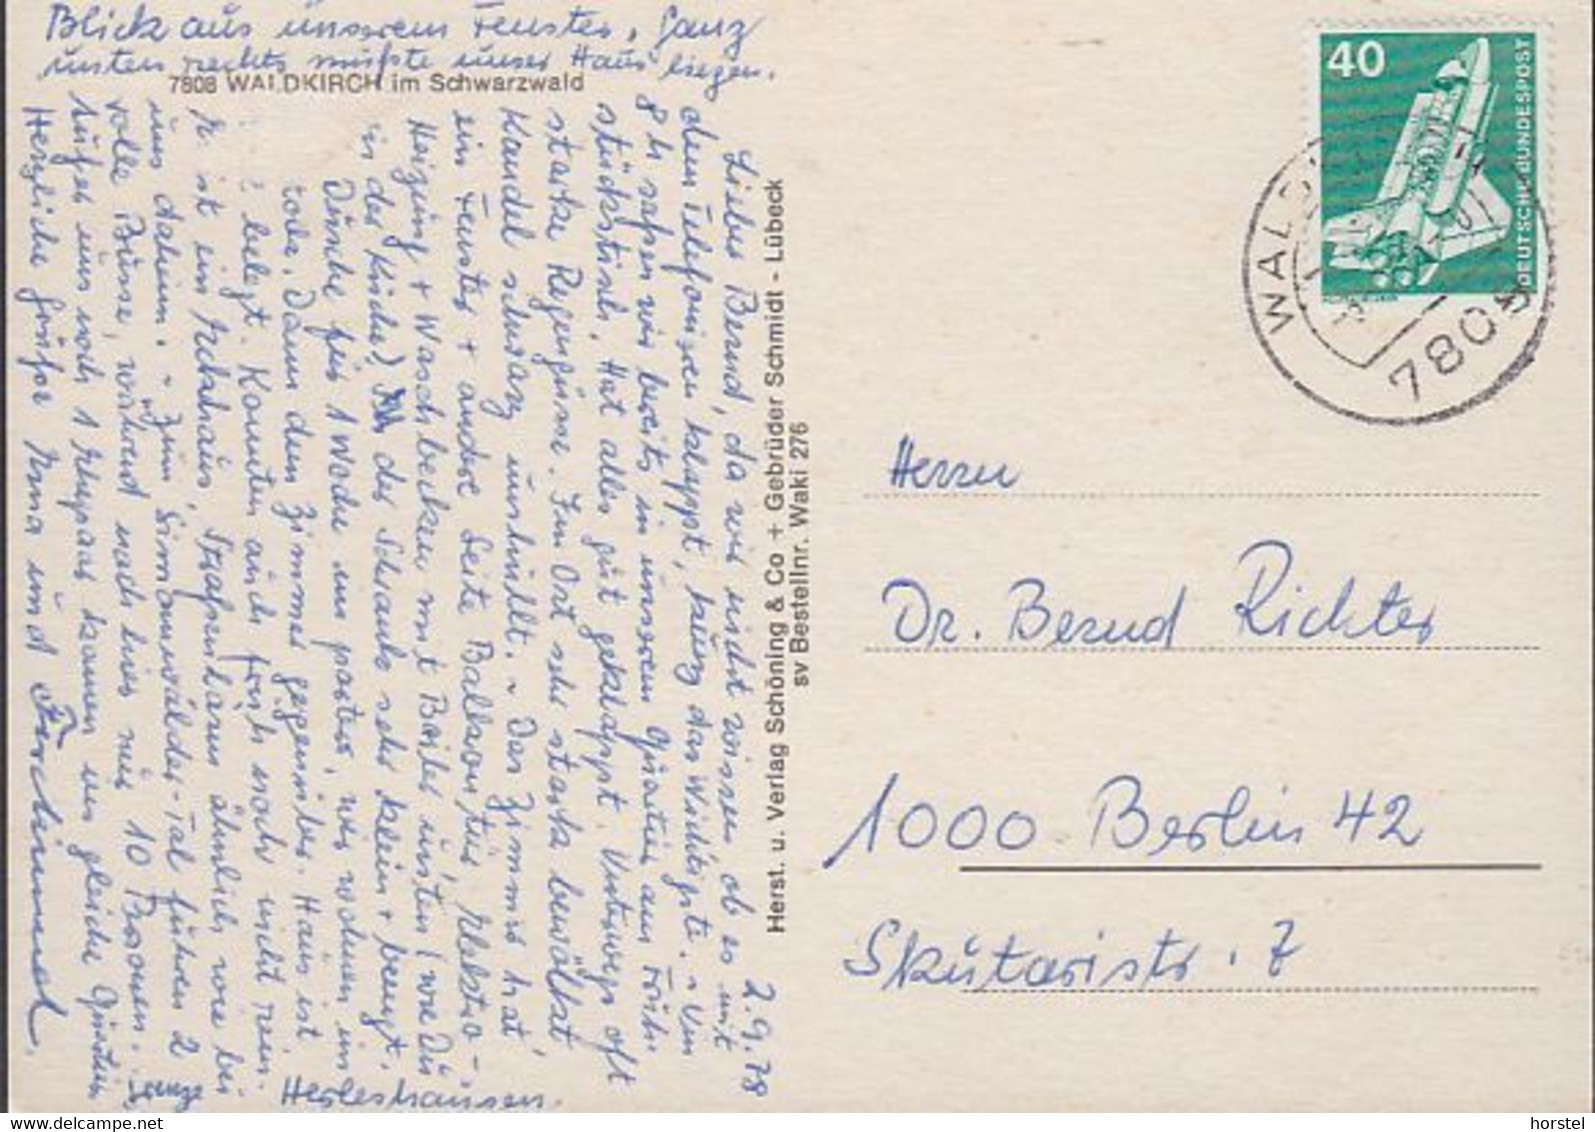 Blick aus unserem Fenster. Ganz
unten rechts müßte unser Haus liegen.
7808 WALDKIRCH im Schwarzwald
2.9.78
Lieber Bernd, da wir nicht wissen ob es mit
dem Telefonieren klappt, kurz das Wichtigste. Um
8 h saßen wir bereits in unserem Quartier am Früh-
stückstisch. Hat alles gut geklappt. Unterwegs oft
starke Regengüsse. Im Ort sehr stark bewölkt,
Kandel schwarz umhüllt. Das Zimmer hat
ein Fenster + andere Seite Balkontür, Elektro-
Heizung + Waschbecken mit Boiler unten (wie Du
in der Küche) der Schrank sehr klein + beengt.
Dusche für 1 Woche im wir wohnen im
Dann dem Zimmer gegenüber. Haus ist
belegt. Konnten auch früh noch nicht rein.
ist ein Eckhaus, ähnlich wie bei
uns daheim. Zum Simonswälder-Tal fuhren 2
volle Busse, während nach hier nur 10 Personen.
Außer uns noch 1 Ehepaar kamen ins gleiche Quartier
Herzliche Grüße
Herleshausen.
Herst. u. Verlag Schöning & Co + Gebrüder Schmidt - Lübeck
sv Bestellnr. Waki 276
40
DEUTSCHE BUNDESPOST
7808
Herrn
Dr. Bernd Richter
1000 Berlin 42
Skutaristr. 7
horstel
www.delcampe.net